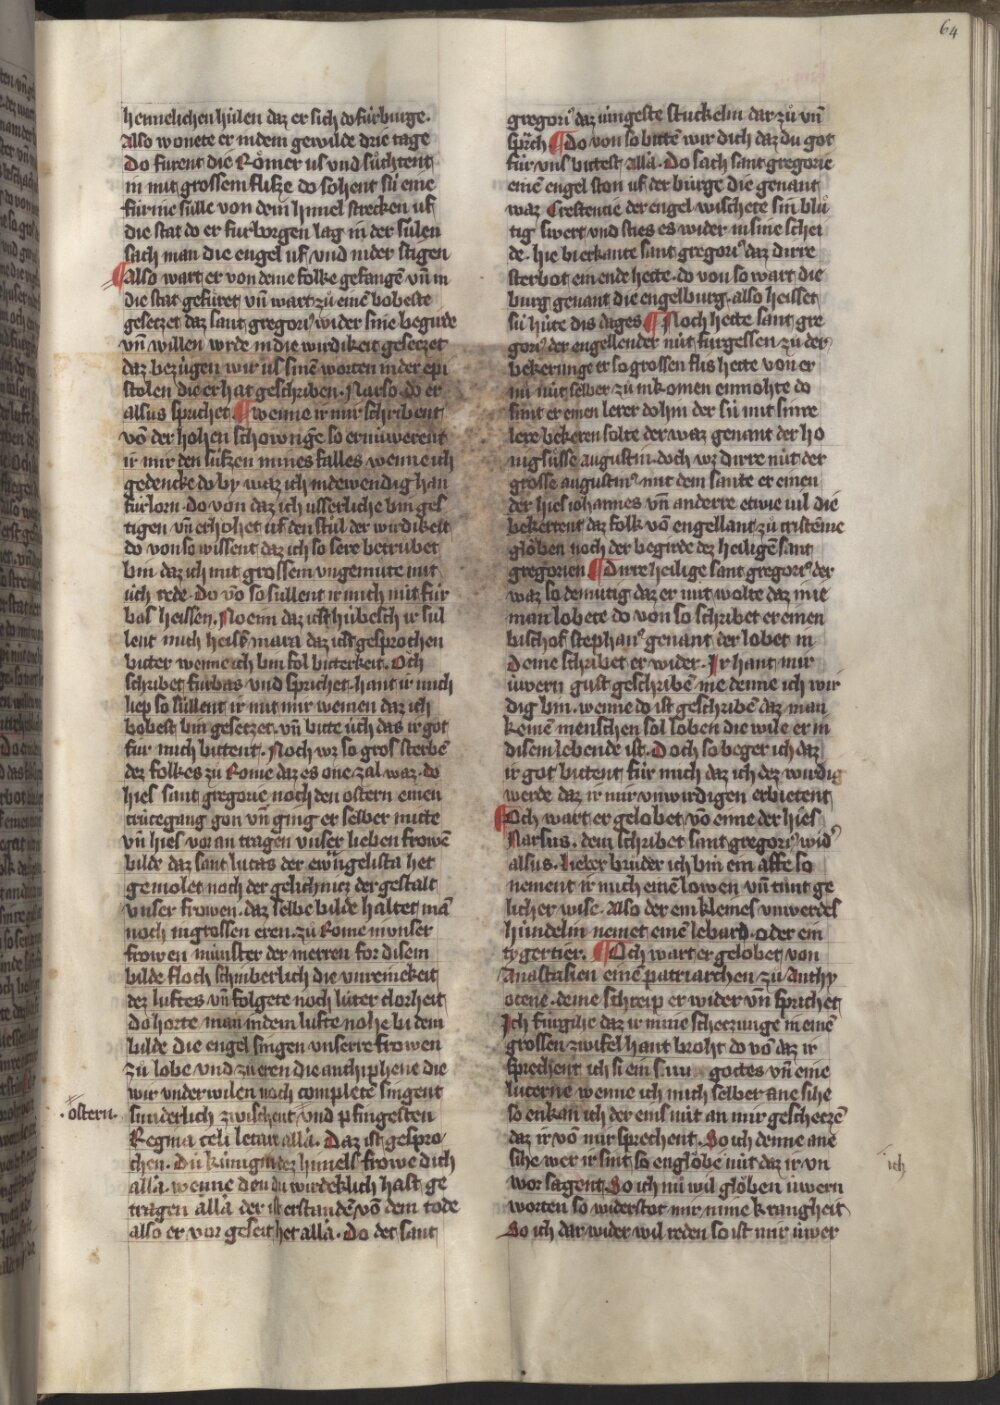 64
heimelichen hülen daz er sich do fürburge.
Also wonete er in dem gewilde drie tage
Do fůrent die Römer us vnd sůchtent
in mit grossem flisze do sohent sü eine
fürine sülle von dem himel strecken uf
die stat do er furborgen lag in der sülen
sach man die engel uf vnd nider stigen
Also wart er von deme folke gefangē vn̄ in
die stat gefüret vn̄ wart zů eime bobeste
gesetzet daz sant gregoriꝰ wider sine begirde
vn̄ willen wrde in die wirdikeit gesetzet
daz bezügen wir us sinē worten in der epi
stolen die er hat geschriben. Narso do er
alsus sprichet ¶ wenne ir mir schribent
vō der hohen schowūge so ernüwerent
ir mir den süfzen mines falles wenne ich
gedencke do by waz ich indewendig han
fürlorn. do von daz ich usserliche bin ges
tigen vn̄ erhohet uf den stůl der wirdikeit
do von so wissent daz ich so sere betrübet
bin daz ich mit grossem vngemůte mit
üch rede. Do vō so süllent ir mich nüt für
bas heissen. Noemi daz ist hübesch ir sül
lent mich heisē mara daz ist gesprochen
bitter wenne ich bin fol bitterkeit. Och
schribet fürbas vnd sprichet. hant ir mich
liep so süllent ir mit mir weinen daz ich
bobest bin gesetzet. vn̄ bitte üch das ir got
für mich bittent. Noch wz so gros sterbē
dez folkes zů Rome daz es one zal waz. do
hies sant gregorie noch den ostern einen
crücegang gon vn̄ ging er selber mitte
vn̄ hies vor an tragen vnser lieben frowē
bilde daz sant lucas der ewangelista het
gemolet noch der gelichnüz der gestalt
vnser frowen. daz selbe bilde haltet mā
noch in grossen eren. zů Rome in vnser
frowen münster der merren for disem
bilde floch schinberlich die vnreinekeit
dez luftes vn̄ folgete noch luter clorheit
Do horte man in dem lufte nohe bi dem
bilde die engel singen vnserre frowen
zů lobe vnd zů eren die antiphene die
wir vnderwilen noch completē singent
sunderlich zwischent vnd pfingesten
.ostern.
Regina celi letare alla. Daz ist gespro-
chen. Du künigin dez himels frowe dich
alla. wenne den du wirdeklich hast ge
tragen alla der ist erstandē vō dem tode
also er vor geseit het alla. Do det sant
gregoriꝰ daz iungeste stückelin dar zů vn̄
sprͦch ¶ Do von so bittē wir dich daz du got
für vns bittest alla. Do sach sant gregorie
einē engel ston uf der bürge die genant
waz Crestentie der engel wischete sin blů
tig swert vnd sties es wider in sine schei
de. hie bi erkante sant gregoriꝰ daz dirre
sterbot ein ende hette. do von so wart die
burg genant die engelburg. also heisset
sü hüte dis dages ¶ Noch hette sant gre
goriꝰ der engellender nüt fürgessen zů der
bekerunge er so grossen flis hette von er
nu nüt selber zů in komen enmohte do
sant er einen lerer do hin der sü mit sinre
lere bekeren solte der waz genant der ho
nigsüsse augustin. doch wz dirre nüt der
grosse augustinꝰ mit dem sante er einen
der hies iohannes vn̄ anderre etwie vil die
bekertent daz folk vō engellant zů cristēme
glöben noch der begirde dez heiligē sant
gregorien ¶ Dirre heilige sant gregoriꝰ der
waz so demütig daz er nüt wolte daz in ie
man lobete do von so schribet er einen
bischof stephanꝰ genant der lobet in
Deme schribet er wider. Ir hant mir
üwern gust geschribē me denne ich wir
dig bin. wenne do ist geschribē daz man
keinē menschen sol loben die wile er in
disem lebende ist. Doch so beger ich daz
ir got bittent für mich daz ich dez wirdig
werde daz ir mir vnwirdigen erbietent
¶ Och wart er gelobet vō eime der hies
Narsus. dem schribet sant gregoriꝰ widꝰ
alsus. lieber brůder ich bin ein affe so
nement ir mich einē lowen vn̄ tůnt ge
licher wise. Also der ein kleines vnwerdes
hündelin nemet einē lebard. oder ein
tygertier. ¶ Och wart er gelobet von
Anastasien einē patriarchen zů Anthy
ocene. deme schreip er wider vn̄ sprichet
Ich fürgihe daz ir mine scheczunge in einē
grossen zwifel hant broht do vō daz ir
sprechent ich si ein gottes vn̄ eine
lucerne wenne ich mich selber ane sihe
so enkan ich der eins nüt an mir gescheczē
daz ir vō mir sprechent. So ich denne ane
sihe wer ir sint so englöbe nüt daz ir vn
ich
wor sagent. So ich nů wil glöben üwern
worten so widerstot mir mine krangheit
So ich dar wider wil reden so ist mir üwer